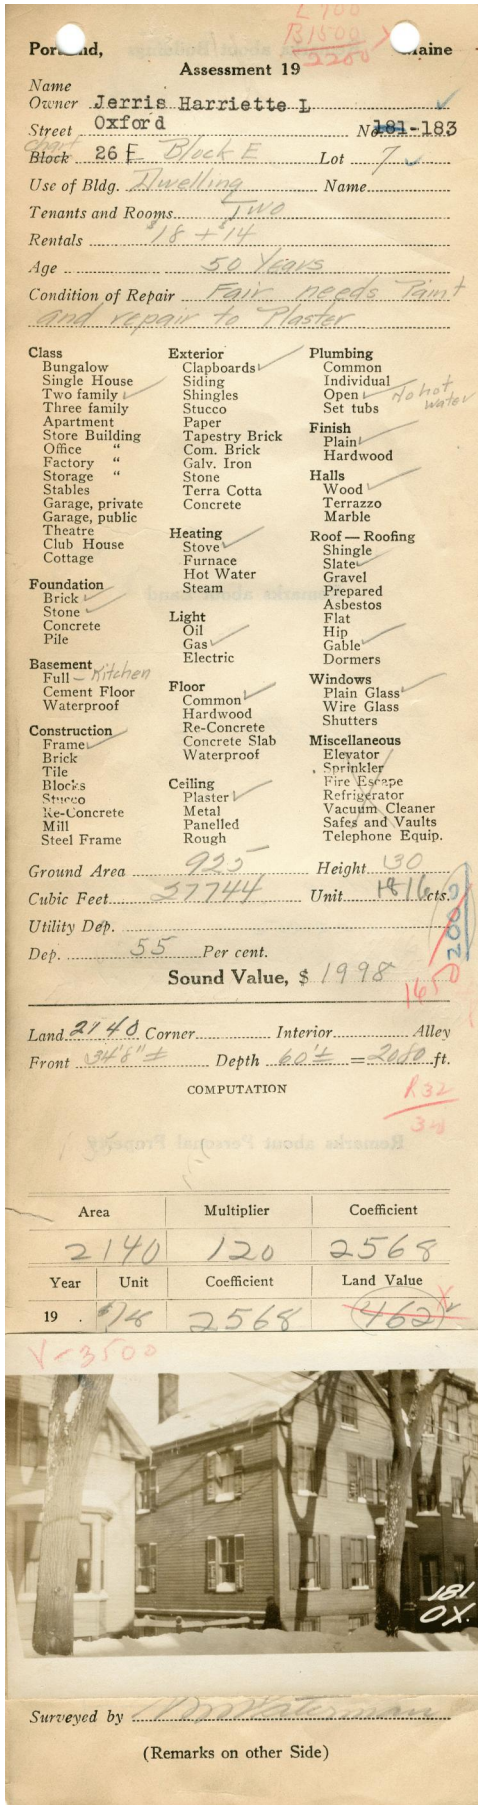 L 700
B1500
2200
Portland, Maine
Assessment 19
Name
Owner Jerris Harriette L
Street Oxford No. 181-183
Chart
Block 26 F Block E Lot 7
Use of Bldg. Dwelling Name
Tenants and Rooms Two
Rentals $18 + $14
Age 50 Years
Condition of Repair Fair needs Paint
and repair to Plaster
Class
Bungalow
Single House
Two family
Three family
Apartment
Store Building
Office "
Factory "
Storage "
Stables
Garage, private
Garage, public
Theatre
Club House
Cottage
Foundation
Brick
Stone
Concrete
Pile
Basement
Full - Kitchen
Cement Floor
Waterproof
Construction
Frame
Brick
Tile
Blocks
Stucco
Re-Concrete
Mill
Steel Frame
Exterior
Clapboards
Siding
Shingles
Stucco
Paper
Tapestry Brick
Com. Brick
Galv. Iron
Stone
Terra Cotta
Concrete
Heating
Stove
Furnace
Hot Water
Steam
Light
Oil
Gas
Electric
Floor
Common
Hardwood
Re-Concrete
Concrete Slab
Waterproof
Ceiling
Plaster
Metal
Panelled
Rough
Plumbing
Common
Individual
Open No hot water
Set tubs
Finish
Plain
Hardwood
Halls
Wood
Terrazzo
Marble
Roof — Roofing
Shingle
Slate
Gravel
Prepared
Asbestos
Flat
Hip
Gable
Dormers
Windows
Plain Glass
Wire Glass
Shutters
Miscellaneous
Elevator
Sprinkler
Fire Escape
Refrigerator
Vacuum Cleaner
Safes and Vaults
Telephone Equip.
Ground Area 925 Height 30
Cubic Feet 27744 Unit 16 cts.
Utility Dep.
Dep. 55 Per cent.
2000
Sound Value, $ 1998
1650
Land 2140 Corner Interior Alley
Front 34'8"± Depth 60'± = 2080 ft.
COMPUTATION
R32
34
Remarks about Personal Property
Area Multiplier Coefficient
2140 120 2568
Year Unit Coefficient Land Value
19 . $/18 2568 462
V-3500
181
OX.
Surveyed by Waterman
(Remarks on other Side)